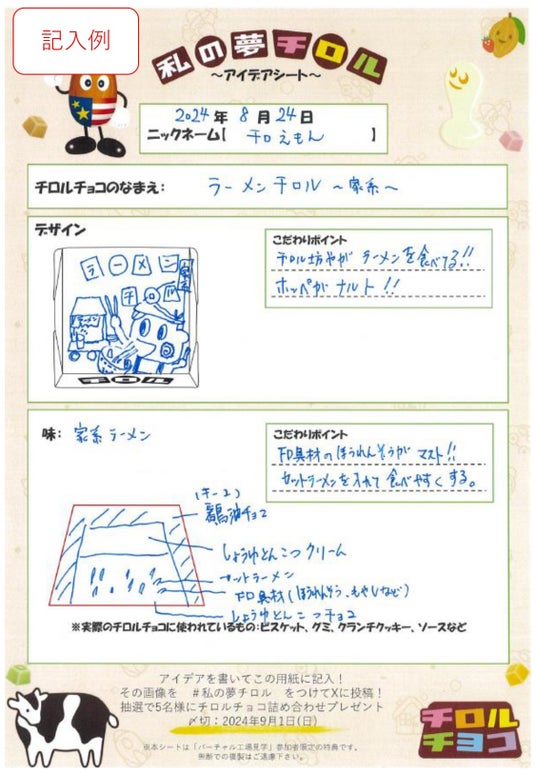 記入例
私の夢チロル
～アイデアシート～
2024年 8月24日
ニックネーム【 チロえもん 】
チロルチョコのなまえ: ラーメンチロル ～家系～
デザイン
ラーメン
家系
チロル
ラーメン
チロル
こだわりポイント
チロル坊やが ラーメンを食べてる!!
ホッペが ナルト!!
味: 家系ラーメン
こだわりポイント
FD具材のほうれんそうが マスト!!
カットラーメンを入れて 食べやすくする。
(チーユ)
鶏油チョコ
しょうゆとんこつ クリーム
カットラーメン
FD具材(ほうれんそう、もやしなど)
しょうゆとんこつチョコ
※実際のチロルチョコに使われているもの:ビスケット、グミ、クランチクッキー、ソースなど
アイデアを書いてこの用紙に記入！
その画像を #私の夢チロル をつけてXに投稿！
抽選で5名様にチロルチョコ詰め合わせプレゼント
〆切：2024年9月1日(日)
※本シートは「バーチャル工場見学」参加者限定の特典です。
無断での複製はご遠慮下さい。
チロル
チョコ